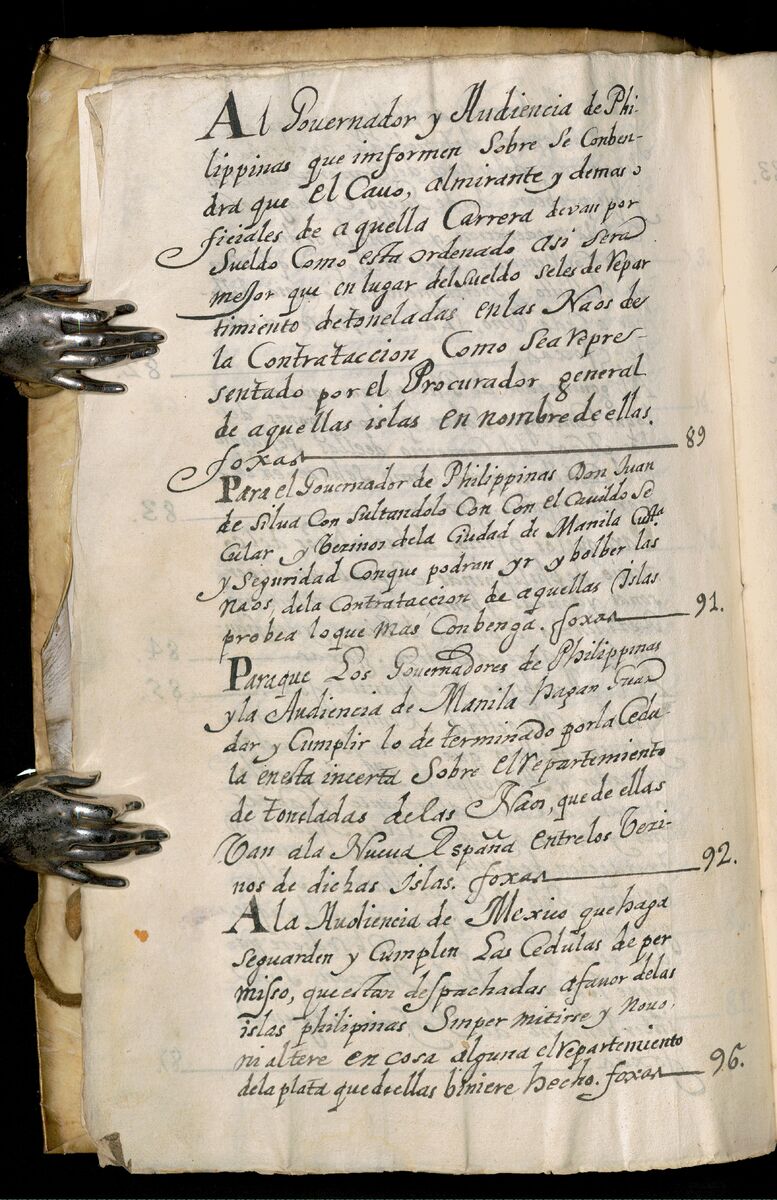 Al Gouernador y Audiencia de Phi-
lippinas que imformen sobre se Conben-
dra que el Cauo, almirante y demas o
ficiales de aquella Carrera devan por
sueldo Como esta ordenado asi sera
mejor que en lugar del sueldo seles de repar
timiento de toneladas en las Naos de
la Contrataccion Como sea repre-
sentado por el Procurador general
de aquellas islas en nombre de ellas.
foxas 89
Para el Gouernador de Philippinas Don Juan
de Silua Con sultandolo Con Con el Cauildo Se
Cular y Vezinos dela Ciudad de Manila
y Seguridad Conque podran yr y bolber las
naos, dela Contrataccion de aquellas Islas
probea loque mas Conbenga. foxas 91.
Para que Los Gouernadores de Philippinas
y la Audiencia de Manila hagan Guar
dar y Cumplir lo de terminado por la Cedu-
la enesta incerta Sobre el repartimiento
de toneladas de las Naos, que de ellas
Van ala Nueua España entre los Vezi-
nos de dichas Islas. foxas 92.
A la Audiencia de Mexico que haga
se guarden y Cumplen Las Cedulas de per
misso, que estan despachadas a fauor delas
islas philipinas Sin permitirse y nouo.
ni altere en cosa alguna el repartimiento
dela plata que de ellas biniere hecho. foxas 96.